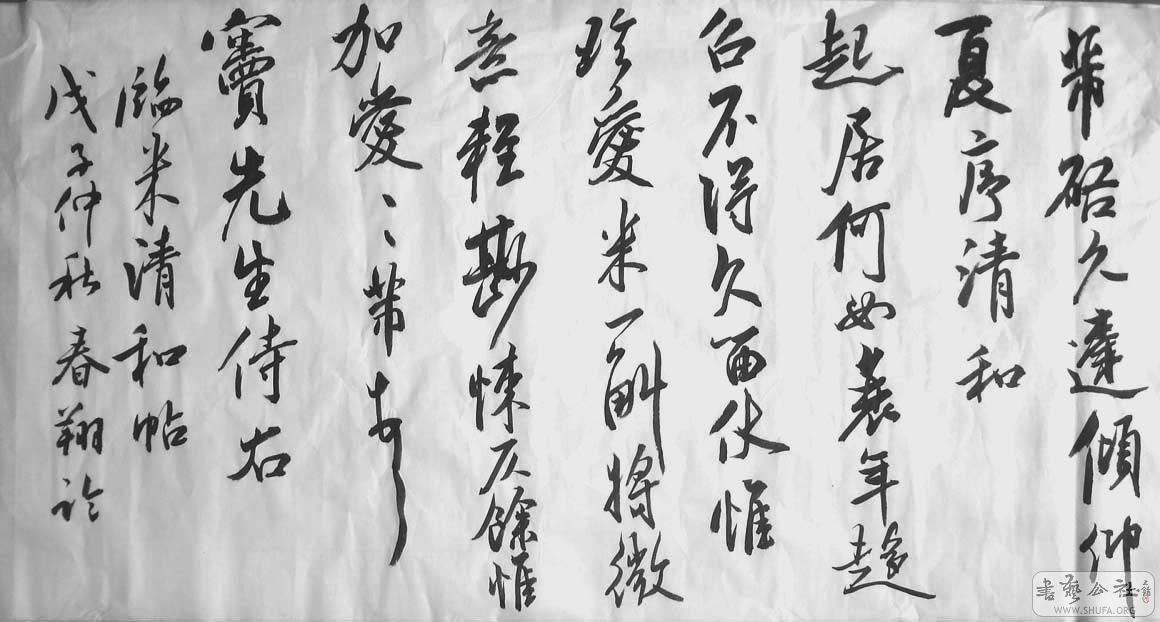 芾启久違傾仰
夏序清和
起居何如衰年趨
召不得久留伏惟
珍愛米一斛将微
意輕尠悚仄餘惟
加愛〻〻芾頓首
竇先生侍右
臨米清和帖
戊子仲秋春翔
書藝公社
WWW.SHUFA.ORG